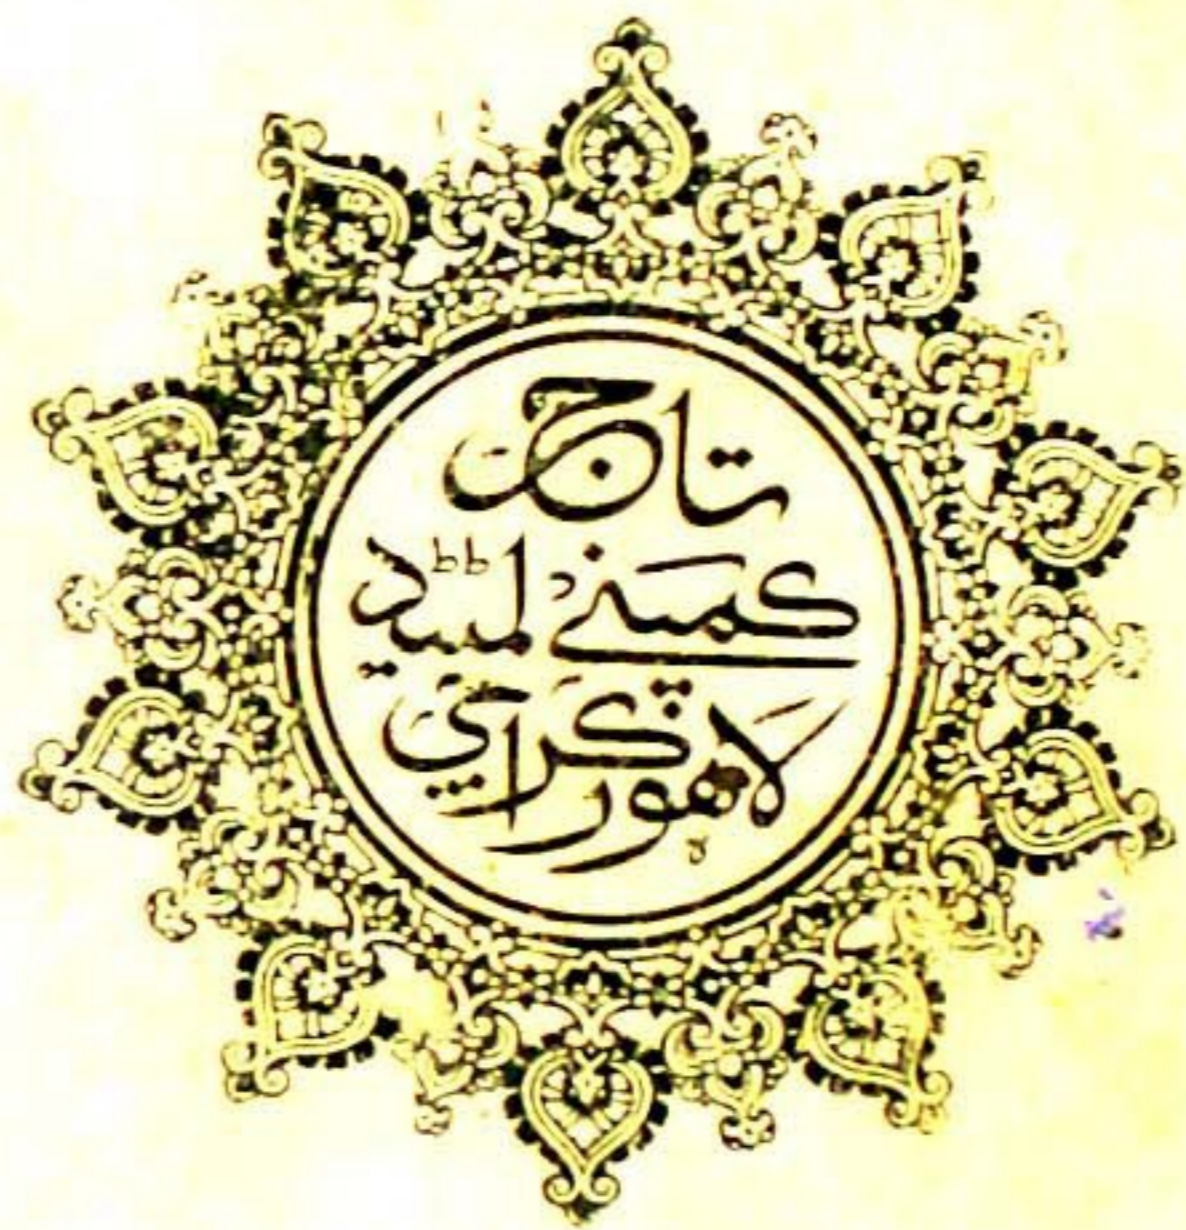 تاج
کمپنی لمیٹڈ
لاہور کراچی